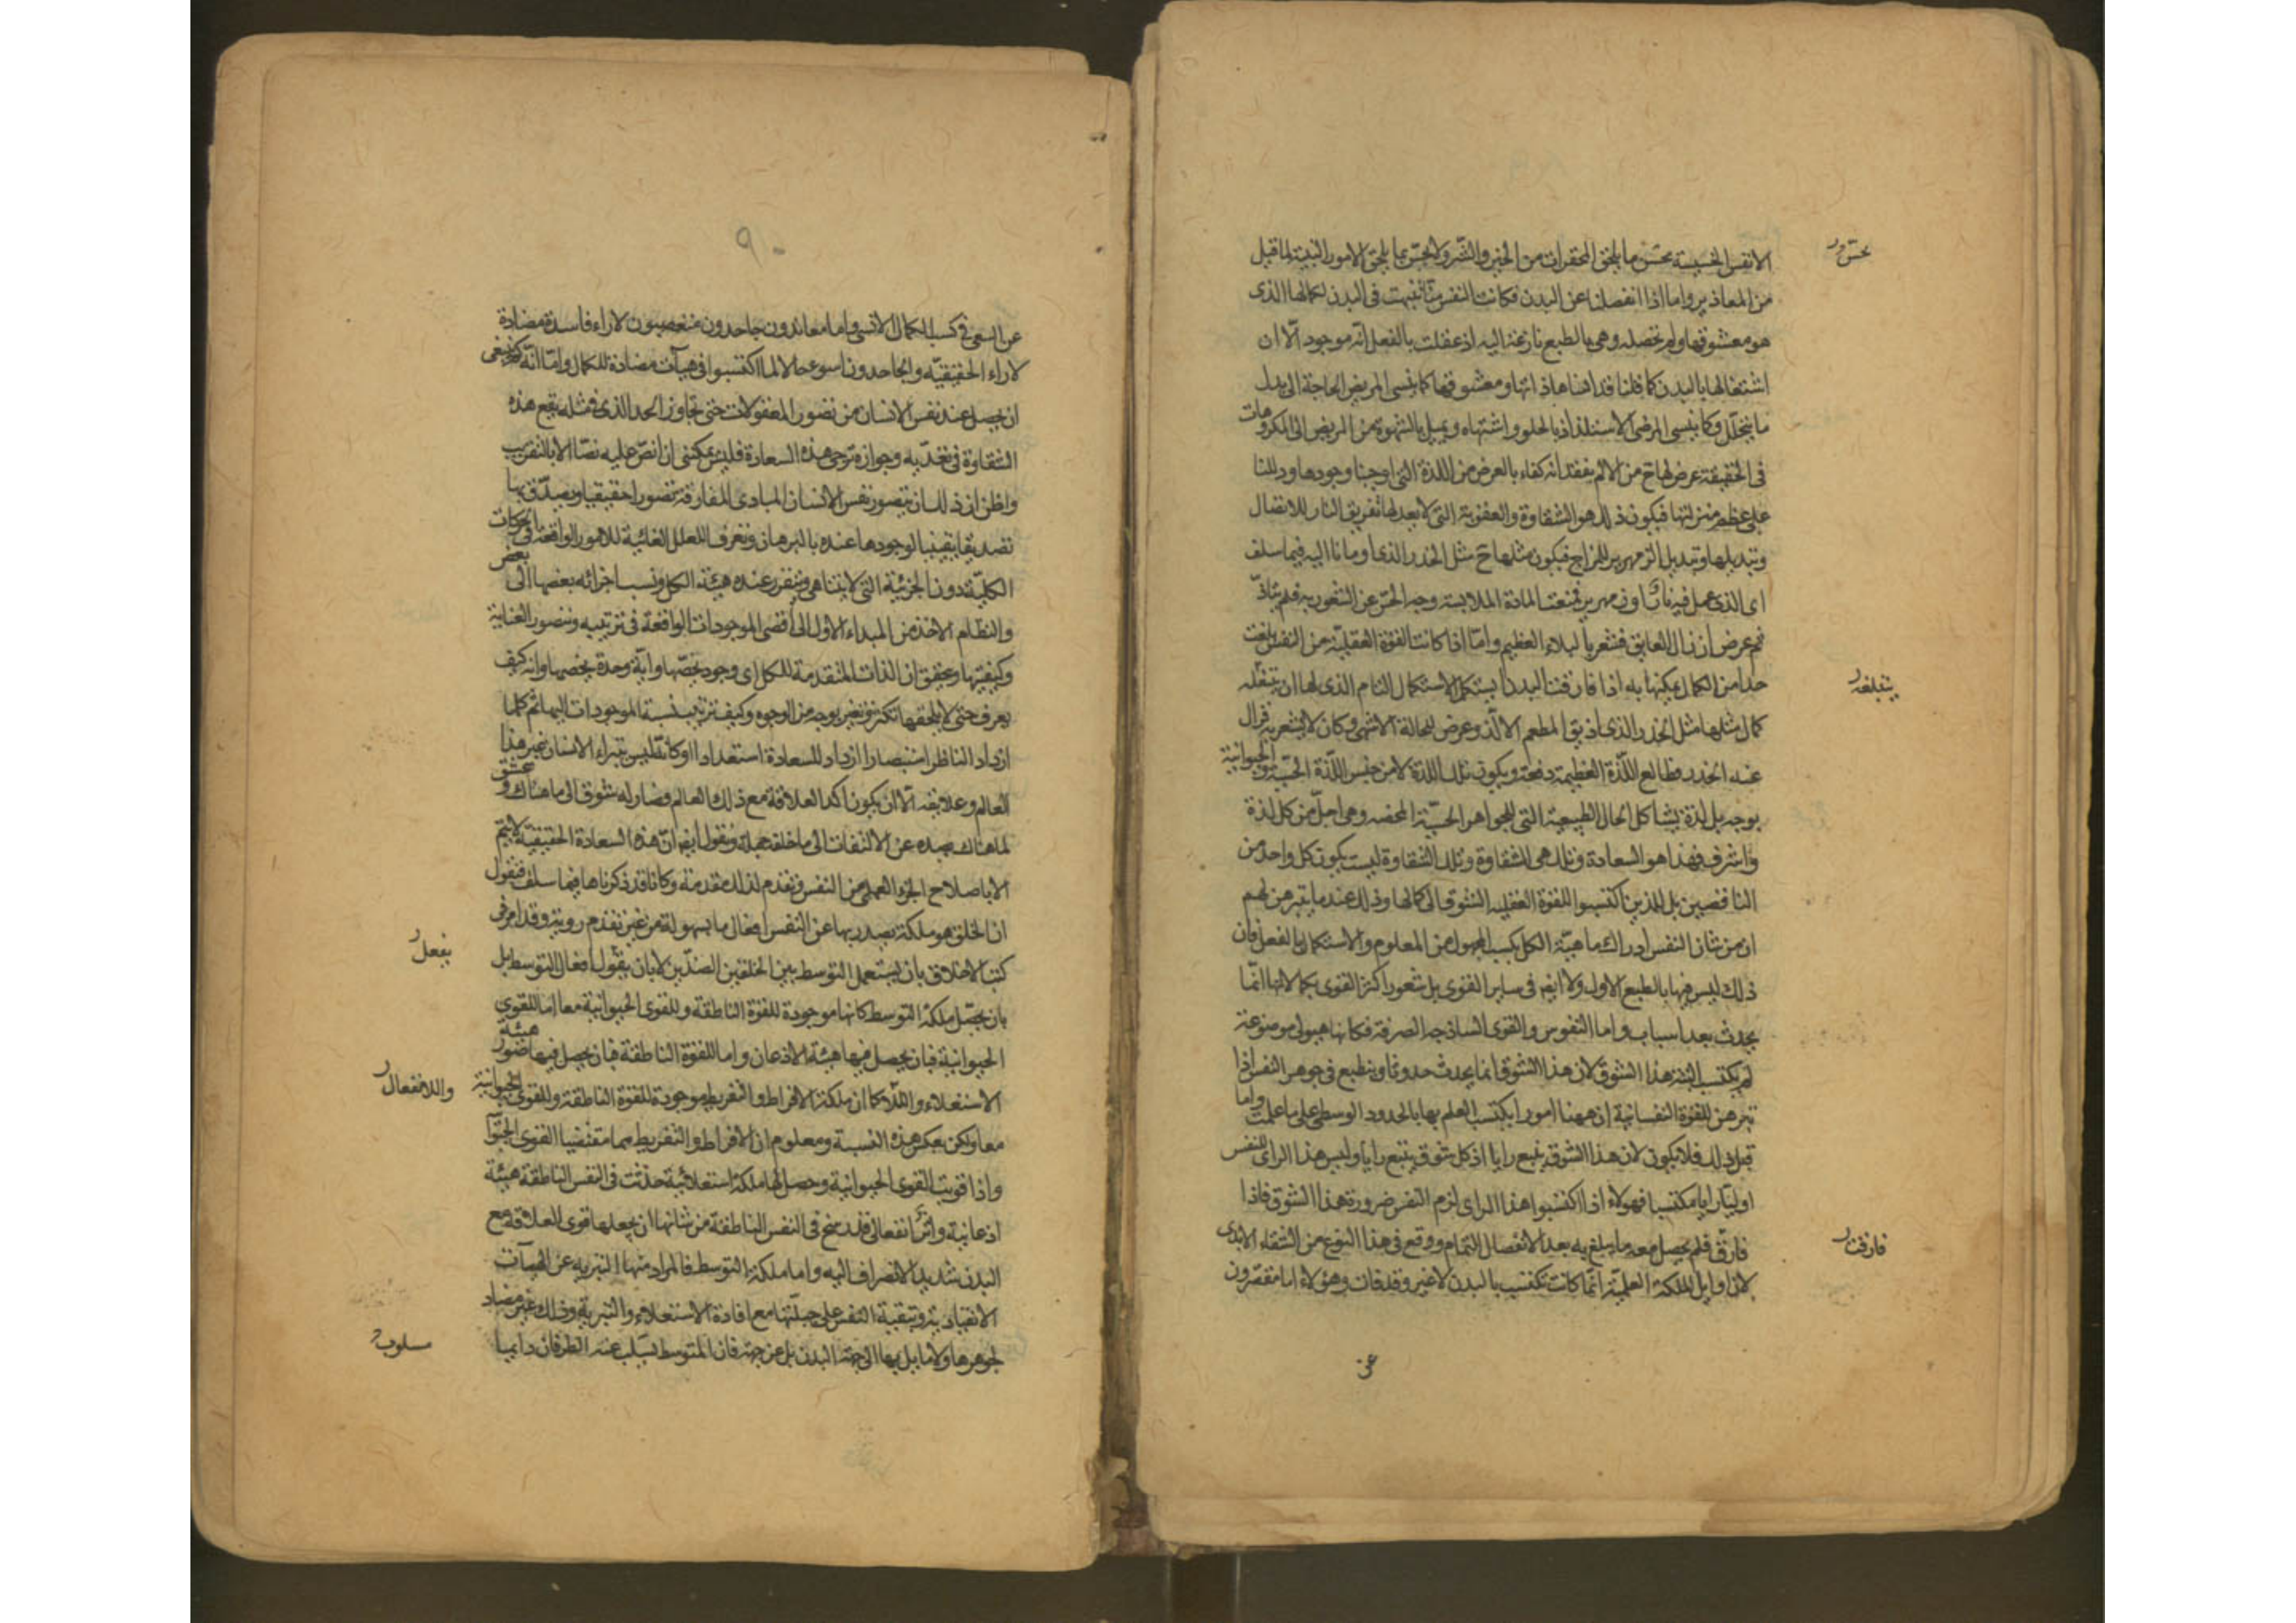 الانفس الخسيسة تحس ما يلحق المحقرات من الخير والشر ولا تحس بما يلحق الامور البهية لما قيل
من المعاذير واما اذا انفصلنا عن البدن فكانت النفس منا تنبهت فى البدن لكمالها الذى
هو معشوقها ولم تحصله وهى بالطبع نازعة اليه اذ عقلت بالفعل انه موجود الّا ان
اشتغالها بالبدن كما قلنا قد انساها ذاتها ومعشوقها كما ينسى المريض الحاجة الى بدل
ما يتحلّل وكما ينسى المرض الاستلذاذ بالحلو واشتهاه ويميل بالشهوة من المريض الى المكروهات
فى الحقيقة عرض لها ح من الالم بفقدانه كفاء بالعرض من اللذة التى اوجبنا وجودها ودللنا
على عظم منزلتها فيكون ذلك هو الشقاوة والعقوبة التى لا يعدلها تفريق النار للاتصال
وتبديلها وتبديل الزمهرير للمزاج فيكون مثلها ح مثل الخدر الذى اومأنا اليه فيما سلف
اى الذى عمل فيه نار او زمهرير فمنعت المادة الملابسة وجه الحس عن الشعور به فلم يتاذّ
ثم عرض ان زال العايق فشعر بالبلاء العظيم وامّا اذا كانت القوة العقلية من النفس بلغت
حدا من الكمال يمكنها به اذا فارقت البدن ان يستكمل الاستكمال التام الذى لها ان تبلغه
كان مثلها مثل الخدر الذى اذيق المطعم الالذ وعرض للحالة الاشهى وكان لا يشعر به فزال
عنه الخدر فطالع اللذّة العظيمة دفعة ويكون تلك اللذة لا من جنس اللذّة الحسّية والحيوانية
بوجه بل لذة يشاكل الحال الطيبة التى للجواهر الحيّة المحضه وهى اجلّ من كل لذة
واشرف فهذا هو السعادة وتلك هى الشقاوة وتلك الشقاوة ليست يكون كل واحد من
الناقصين بل للذين اكتسبوا للقوة العقليه التشوق الى كمالها وذلك عند ما يتبرهن لهم
ان من شان النفس ادراك ماهيّة الكل بكسب المجهول من المعلوم والاستكمال بالفعل فان
ذلك ليس فيها بالطبع الاول ولا ايضا فى ساير القوى بل شعور اكثر القوى بكمالاتها انّما
يحدث بعد اسباب واما النفوس والقوى الساذجه الصرفة فكانها هيولى موضوعة
لم يكتسب البتة هذا الشوق لان هذا الشوق انما يحدث حدوثا وينطبع فى جوهر النفس اذا
تبرهن للقوة النفسانية ان ههنا امورا يكتسب العلم بها بالحدود الوسطى على ما علمت واما
قبل ذلك فلا يكون لان هذا الشوق يتبع رايا اذ كل شوق يتبع رايا وليس هذا الراى للنفس
اوليّا بل رايا مكتسبا فهولاء اذا اكتسبوا هذا الراى لزم النفس ضرورة هذا الشوق فاذا
فارق فلم يحصل معه ما يبلغ به بعد الانفصال التمام ووقع فى هذا النوع من الشقاء الابدى
لان اوايل الملكة العلميّة انّما كانت تكتسب بالبدن لا غير وقد فات وهؤلاء اما مقصّرون
عن
تحس
يتبلغه
فارقت
٩٠
عن السعى فى كسب الكمال الانسى واما معاندون جاحدون متعصبون لاراء فاسدة مضادة
لاراء الحقيقيّة والجاحدون اسوء حالا لما اكتسبوا من هيآت مضادة للكمال وامّا انّه كم ينبغى
ان يحصل عند نفس الانسان من تصور المعقولات حتى تجاوز الحد الذى فى مثله يقع هذه
الشقاوة وفى تعدّيه وجوازه ترجى هذه السعادة فليس يمكننى ان انصّ عليه نصّا الا بالتقريب
واظن ان ذلك ان يتصور نفس الانسان المبادى المفارقة تصورا حقيقيا ويصدّق بها
تصديقا يقينيا لوجودها عنده بالبرهان ويعرف العلل الغائية للامور الواقعة فى الحركات
الكليّة دون الجزئية التى لا يتناهى ويتقرر عنده هيئة الكل ونسب اجزائه بعضها الى بعض
والنظام الاخذ من المبداء الاول الى اقصى الموجودات الواقعة فى ترتيبه ويتصور العناية
وكيفيتها ويحقق ان الذات المتقدمة للكل اى وجود يخصّها واية وحدة يخصها وانه كيف
يعرف حتى لا يلحقها تكثر وتغير بوجه من الوجوه وكيف ترتيب نسبة الموجودات اليها ثم كلما
ازداد الناظر استبصارا ازداد للسعادة استعدادا وكانّه ليس يتبراء الانسان عن هذا
العالم وعلايقه الّا ان يكون اكد العلاقة مع ذلك العالم فصار له شوق الى ما هناك وعشق
لما هناك يصده عن الالتفات الى ما خلفه جملة ونقول ايضا انّ هذه السعادة الحقيقيّة لا يتم
الا باصلاح الجزء العملى من النفس ونقدم لذلك مقدمة وكانا قد ذكرناها فيما سلف فنقول
ان الخلق هو ملكة يصدر بها عن النفس افعال ما بسهولة من غير تقدم روية وقد امر فى
كتب الاخلاق بان يستعمل التوسط بين الخلقين الضدّين لا بان يقول افعال التوسط بل
بان يحصّل ملكة التوسط كانها موجودة للقوة الناطقة وللقوى الحيوانية معا اما للقوى
الحيوانية فبان يحصل فيها هيئة الاذعان واما للقوة الناطقة فبان يحصل فيها هيئة
الاستعلاء واللّا كما ان ملكة الافراط والتفريط موجودة للقوة الناطقة وللقوى الحيوانية
معا ولكن بعكس هذه النسبة ومعلوم ان الافراط والتفريط هما مقتضيا القوى الحيوا
واذا قويت القوى الحيوانية وحصل لها ملكة استعلائية حدثت فى النفس الناطقة هيئة
اذعانية واثر انفعالى قد رسخ فى النفس الناطقة من شانها ان يجعلها قوى العلاقة مع
البدن شديد الانصراف اليه واما ملكة التوسط فالمراد منها التبريه عن الهيآت
الانقيادية وتبقية النفس على جبلّتها مع افادة الاستعلاء والتبرية وذلك غير مضاد
لجوهرها ولا مايل بها الى جهة البدن بل عن جهة فان المتوسط يسلب عنه الطرفان دايما
يفعل
واللاانفعال
مسلوب